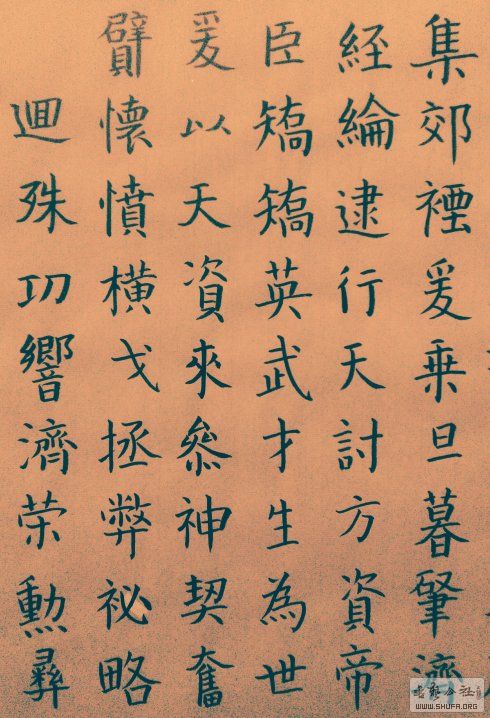 集郊禋爰乗旦暮肇濟
経綸逮行天討方資帝
臣矯矯英武才生為世
爰以天資來叅神契奮
臂懷憤横戈拯弊祕略
迴殊功響濟荣勳彝
书艺公社
WWW.SHUFA.ORG